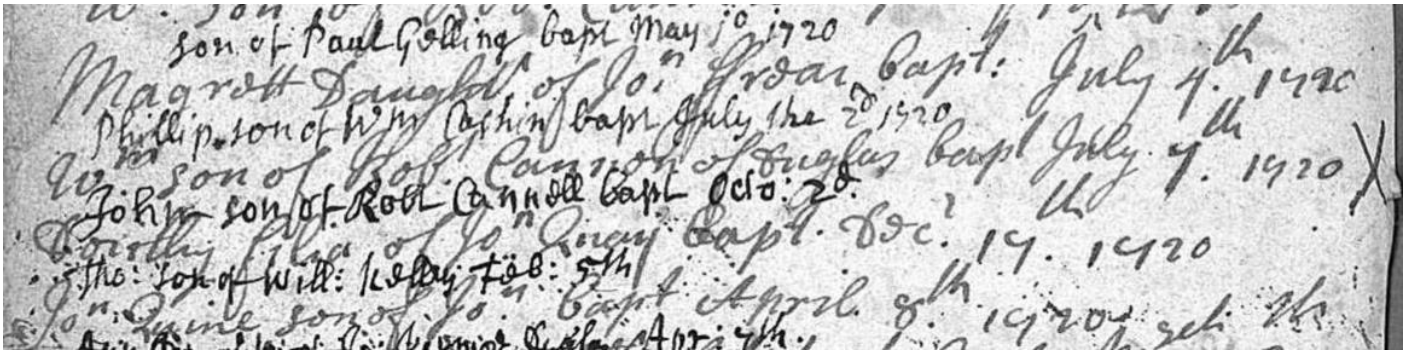 son of Paul Gelling bapt May 1o 1720
Magrett Daught of Jon Crear bapt: July 4.th 1720
Phillip son of Wm Cashin bapt July the 2d 1720
Wm son of Rob. Cannon of Duglas bapt July. 7.th 1720 X
John son of Robt Cannell bapt Octo: 2d.
Dorithy filia of Jon Quay bapt. Dec. 19.th 1720
Tho: son of Will: Kelly Feb: 5th
Jon. Quine son of Jon. bapt April. 8.th 1720
Apr: 7th.